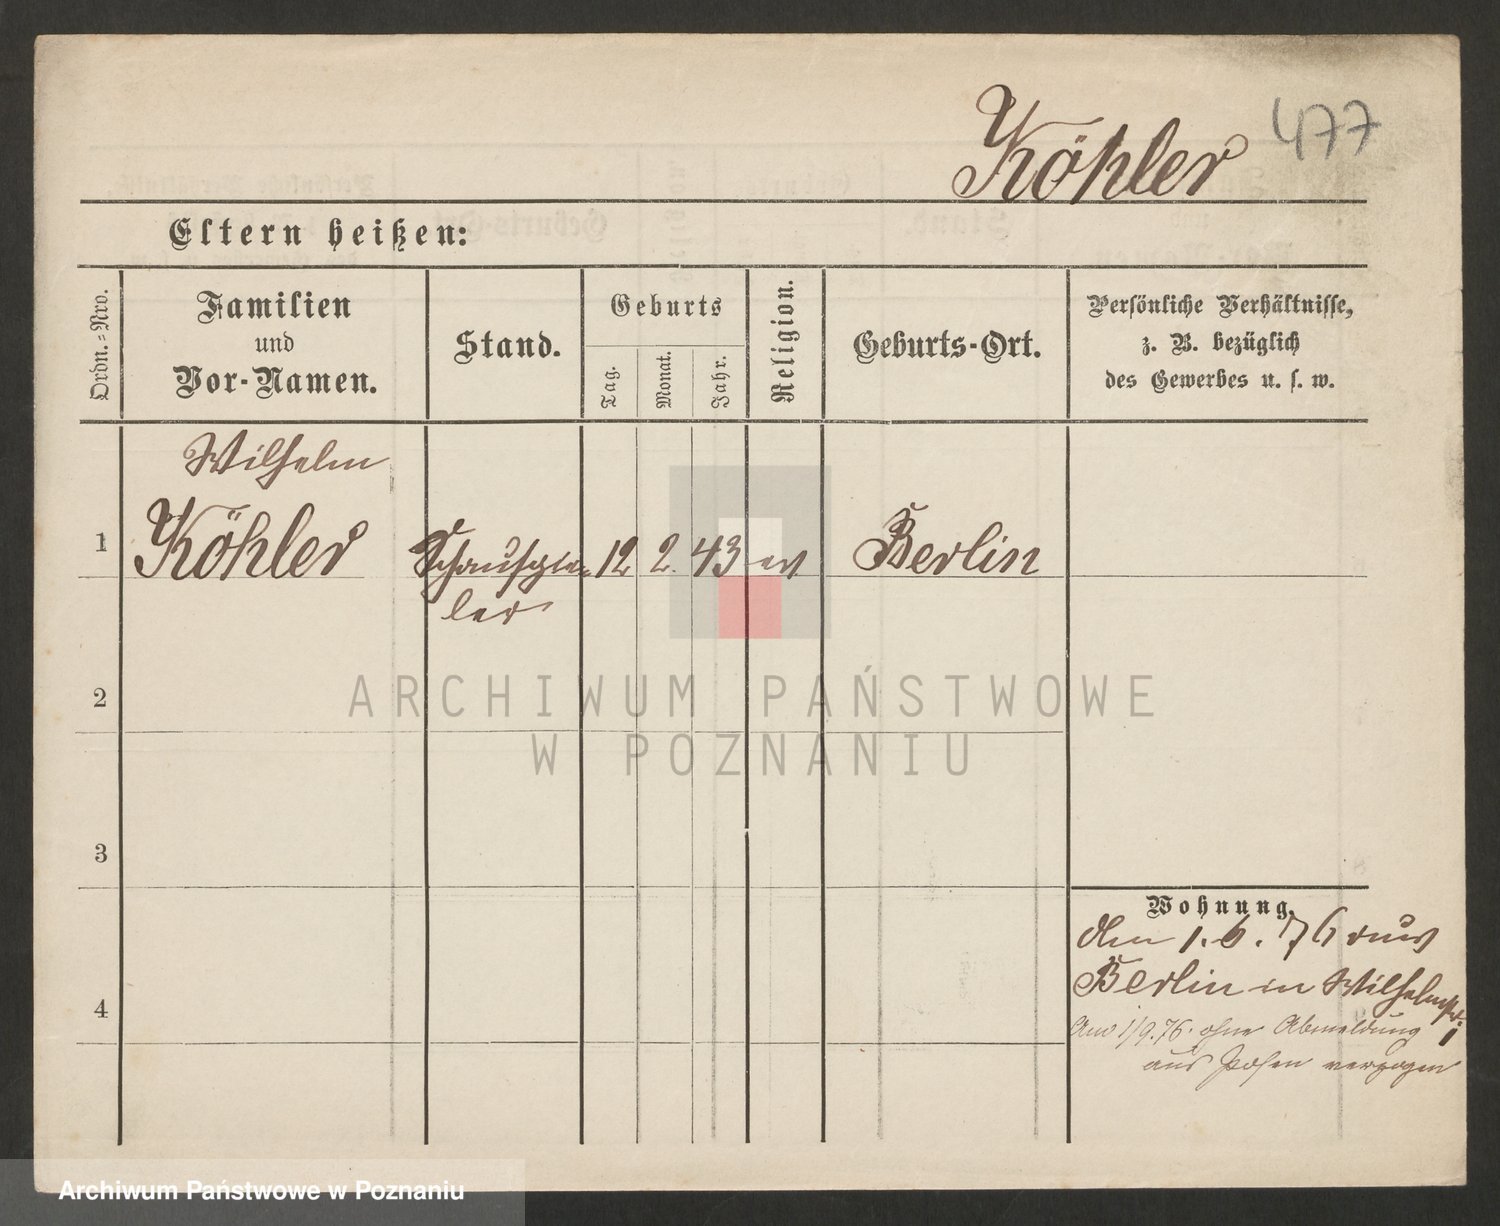 Köhler 477
Eltern heißen:
Ordn.=Nro.
Familien
und
Vor-Namen.
Stand.
Geburts
Tag.
Monat.
Jahr.
Religion.
Geburts-Ort.
Persönliche Verhältnisse,
z. B. bezüglich
des Gewerbes u. s. w.
Wilhelm
1 Köhler Schauspie- 12 2. 43 ev Berlin
ler
2
ARCHIWUM PAŃSTWOWE
W POZNANIU
3
Wohnung.
den 1. 6. 76 aus
Berlin in Wilhelmstr.
1
4
Am 1/9.76. ohne Abmeldung
aus Posen verzogen
Archiwum Państwowe w Poznaniu